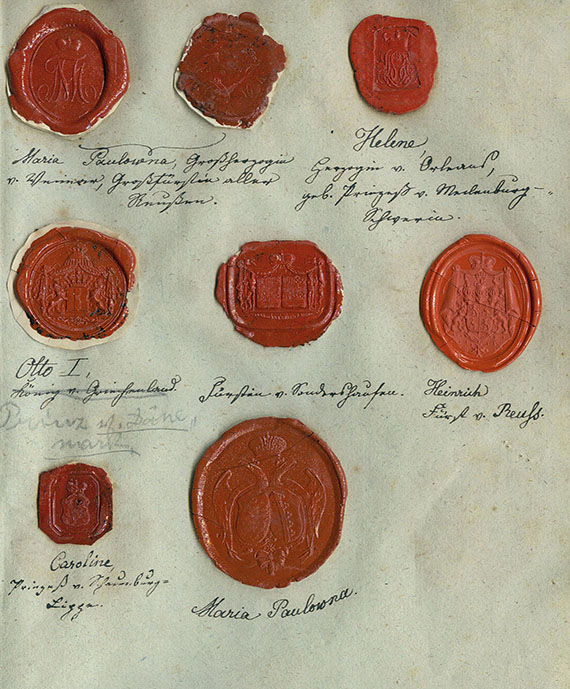 M
Maria Paulowna, Großherzogin
v. Weimar Großfürstin aller
Reußen.
Helene,
Herzogin v. Orleans,
geb. Prinzeß v. Mecklenburg-
Schwerin.
Otto I,
König v. Griechenland.
Prinz v. Däne
mark
Fürsten v. Sondershausen.
Heinrich
Fürst v. Reuss.
Caroline,
Prinzeß v. Schaumburg-
Lippe.
Maria Paulowna.